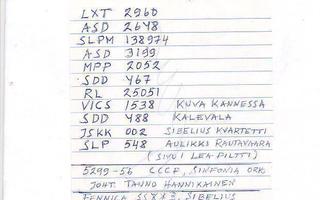 LXT 2960
ASD 2648
SLPM 138974
ASD 3199
MPP 2052
SDD 467
RL 25051
VICS 1538 KUVA KANNESSA
SDD 488 KALEVALA
JSKK 002 SIBELIUS KVARTETTI
SLP 548 AULIKKI RAUTAVAARA
(SIVU 1 LEA PILTTI)
5299-56 CCCP, SINFONIA ORK.
JOHT. TAUNO HANNIKAINEN
FENNICA SIBELIUS